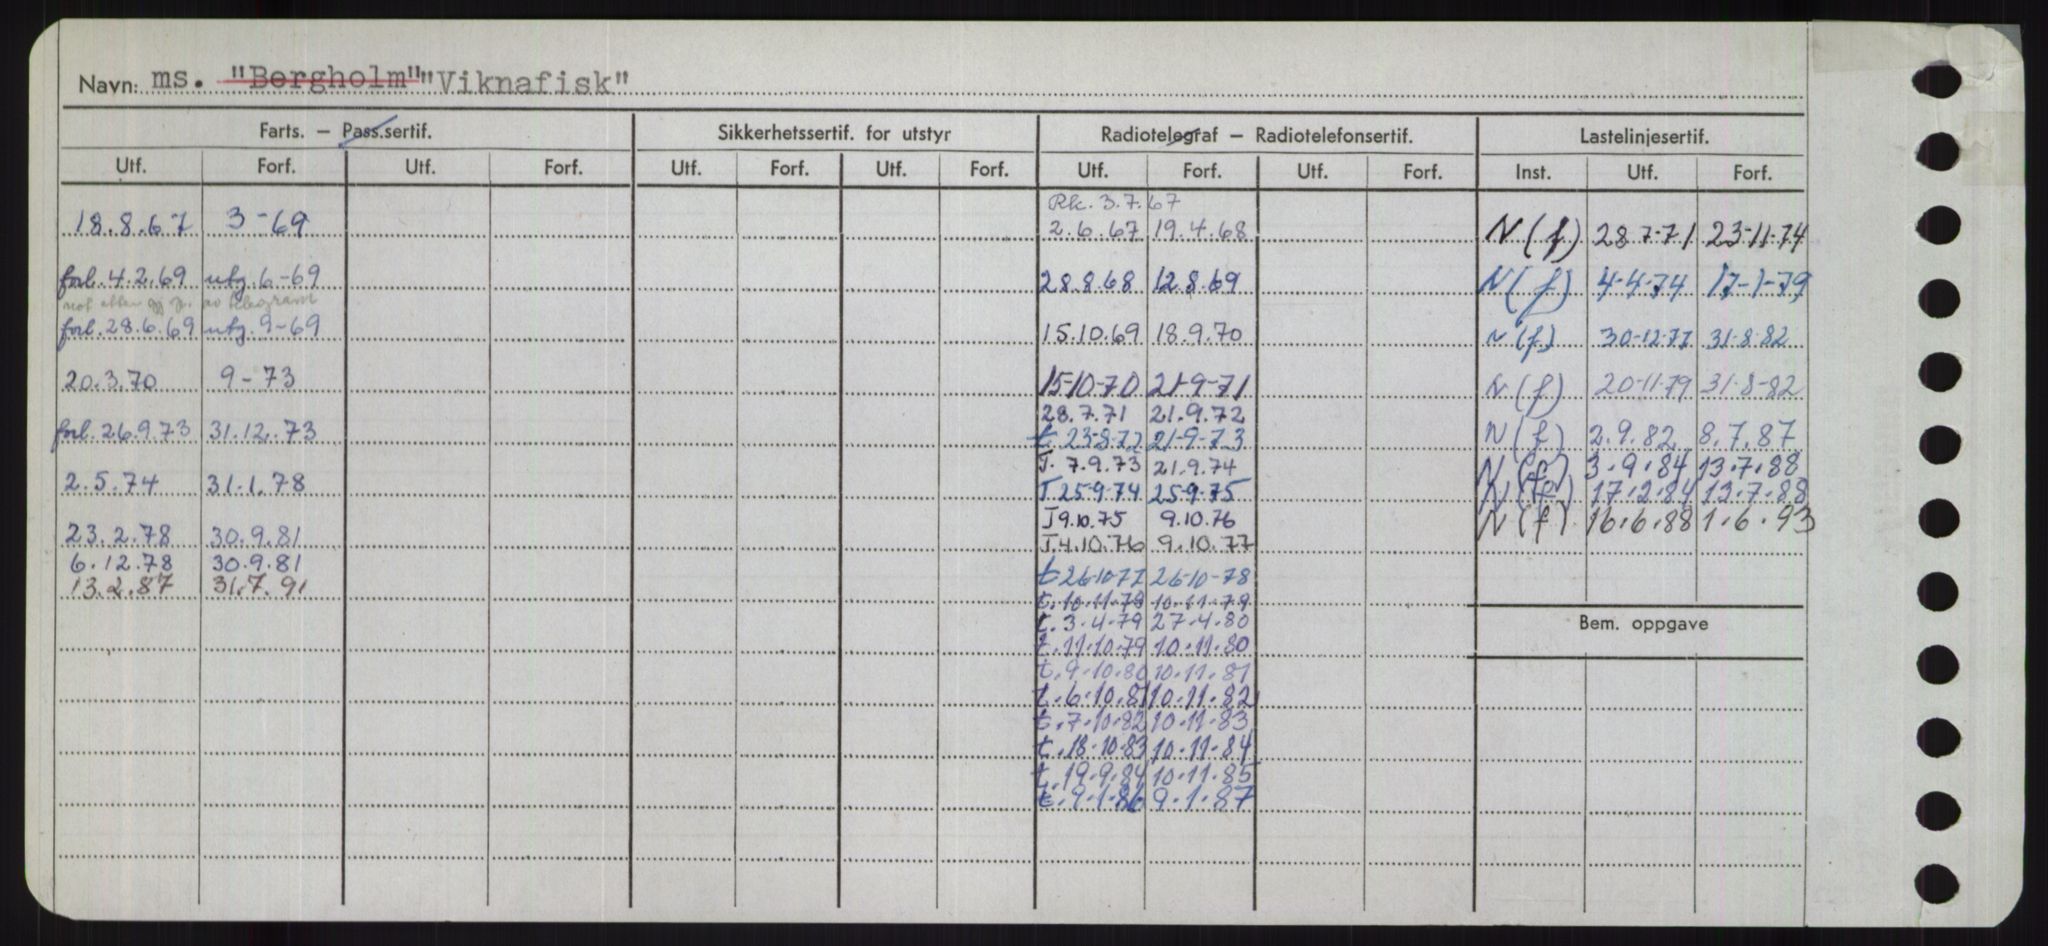 Navn: ms. "Bergholm" "Viknafisk"
Farts. – Pass.sertif. Sikkerhetssertif. for utstyr Radiotelegraf – Radiotelefonsertif. Lastelinjesertif.
Utf. Forf. Utf. Forf. Utf. Forf. Utf. Forf. Utf. Forf. Utf. Forf. Inst. Utf. Forf.
18.8.67 3-69
forl. 4.2.69 utg. 6-69
mot av telegram
forl. 28.6.69 utg. 9-69
20.3.70 9-73
forl. 26.9.73 31.12.73
2.5.74 31.1.78
23.2.78 30.9.81
6.12.78 30.9.81
13.2.87 31.7.91
Rk. 3.7.67
2.6.67 19.4.68
28.8.68 12.8.69
15.10.69 18.9.70
15-10-70 21-9-71
28.7.71 21.9.72
t. 23-8-72 21-9-73
T. 7.9.73 21.9.74
T 25-9-74 25-9-75
T 9.10.75 9.10.76
T. 4.10.76 9.10.77
t 26-10-77 26-10-78
t. 10-11-78 10-11-79
t. 3.4.79 27.4.80
t. 11.10.79 10.11.80
t. 9.10.80 10.11.81
t. 6.10.81 10.11.82
t. 7.10.82 10.11.83
t. 18.10.83 10.11.84
t. 19.9.84 10.11.85
t. 9.1.86 9.1.87
N (f) 28 7-71 23-11-74
N (f) 4-4-74 17-1-79
N (f) 30-12-77 31-8-82
N (f) 20-11-79 31-8-82
N (f) 2.9.82 8.7.87
N (f) 3.9.84 13.7.88
N (f) 17.2.84 13.7.88
N (f) 16.6.88 1.6.93
Bem. oppgave